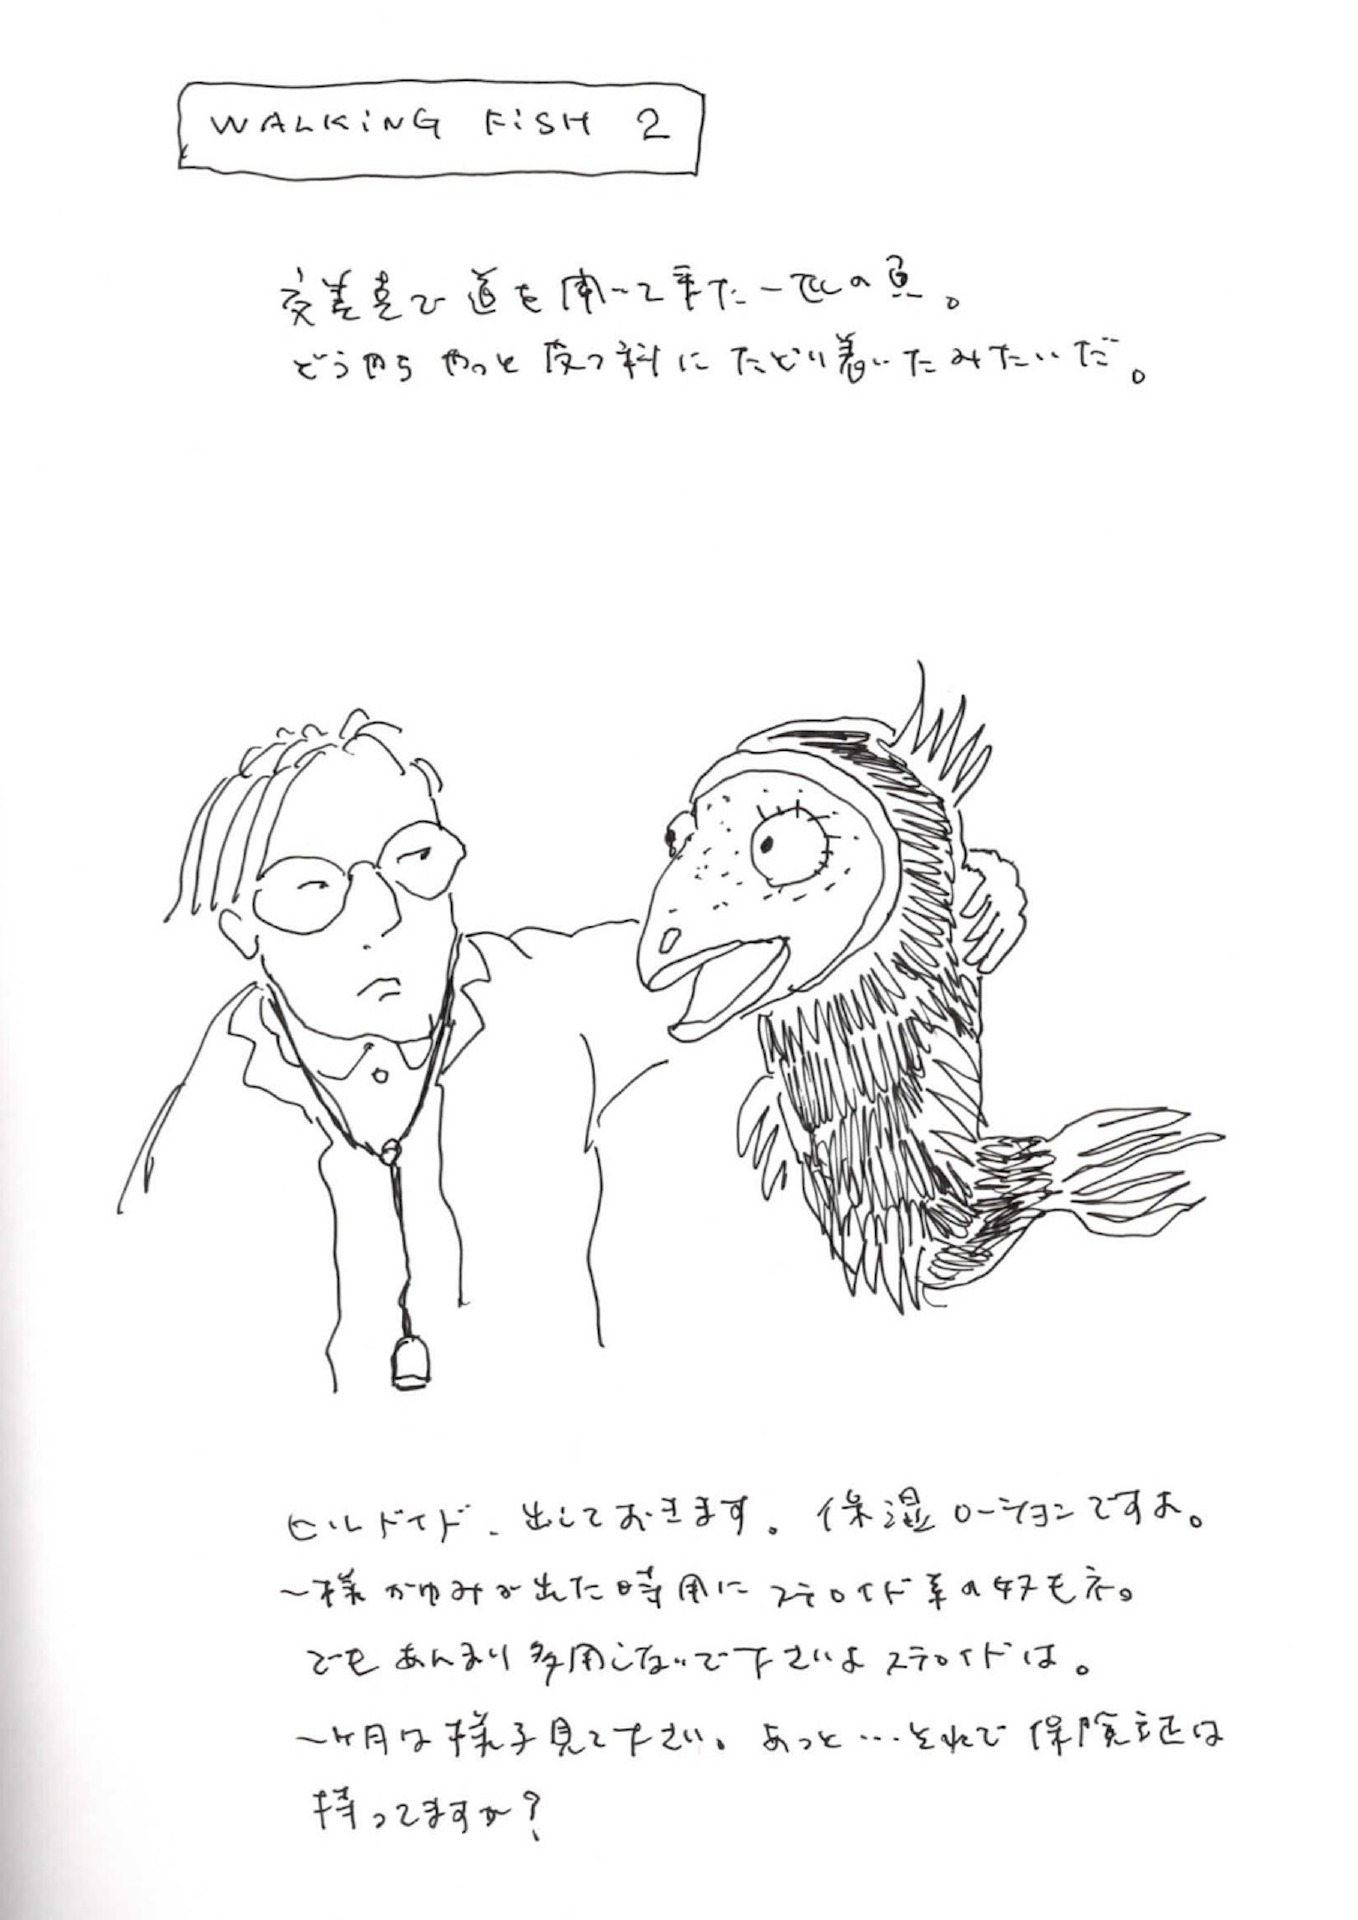 WALKING FISH 2
交差点で道を聞いて来た一匹の魚。
どうやらやっと皮フ科にたどり着いたみたいだ。
ヒルドイド、出しておきます。保湿ローションですよ。
一様かゆみが出た時用にステロイド系のヤツもネ。
でもあんまり多用しないで下さいよステロイドは。
一ヶ月は様子見て下さい。あっと…それで保険証は
持ってますか?